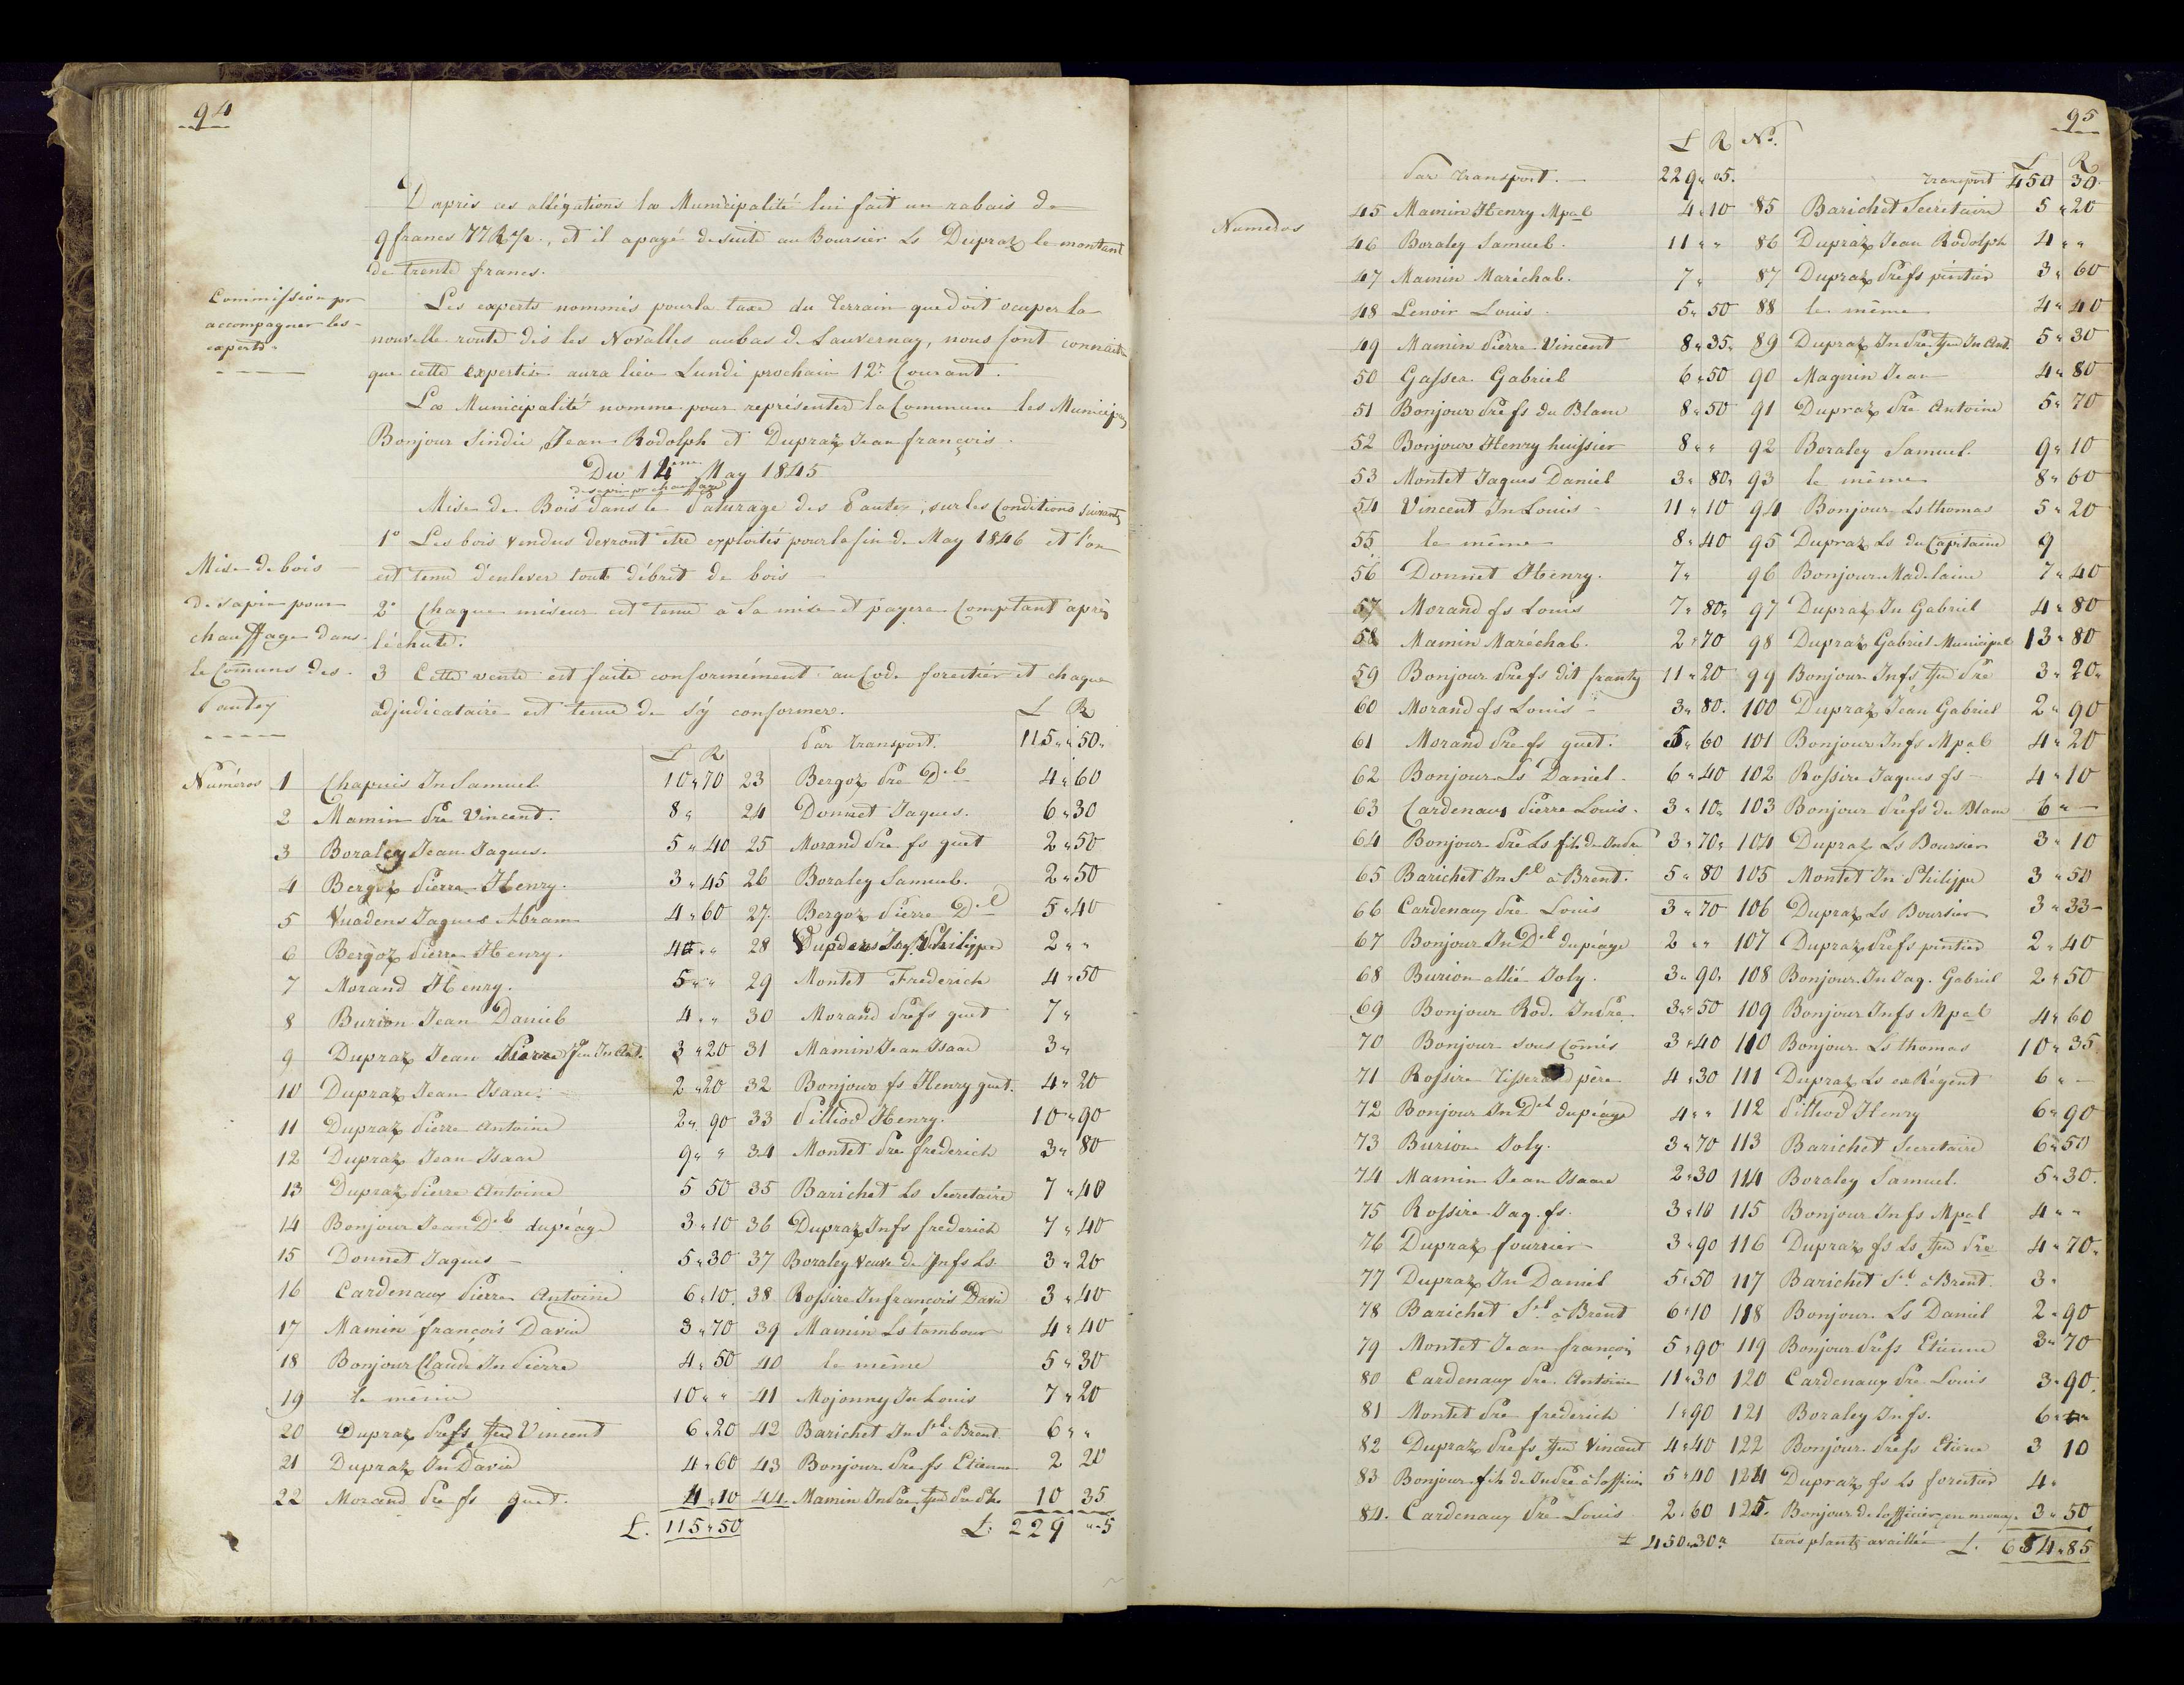 94
D'après ces allégations la Municipalité lui fait un rabais de
9 francs 77 R. , et il a payé desuite au Boursier Ls Dupraz le montant
de trente francs.
Commission pr
accompagner les
experts
Les experts nommés pour la taxe du terrain que doit ocuper la
nouvelle route dès les Novalles au bas de Lauvernay, nous font connaitre
que cette Expertise aura lieu Lundi prochain 12e Courant.
La Municipalité nomme pour représenter la Commune les Municipaux
Bonjour Sindic, Jean Rodolph et Dupraz Jean françois.
Du 14eme May 1845
de sapin pr chauffage
Mise de Bois dans le Paturage des Pautex, sur les Conditions suivantes
1° Les bois vendus devront être exploités pour la fin de May 1846 et l'on
est tenu d'enlever tout débrit de bois
Mise de bois
de sapin pour
chauffage dans
le Comuns des
Pautex
2° Chaque miseur est tenu a sa mise et payera Comptant après
l'échute.
3 Cette vente est faite conformément au Code forestier et chaque
adjudicataire est tenu de s'y conformer.
L R
Par transport. 115 " 50
L R
Numéros 1 Chapuis Jn Samuel 10 " 70 23 Bergoz Pre Del 4 " 60
2 Mamin Pre Vincent. 8 " 24 Donnet Jaques. 6 " 30
3 Boraley Jean Jaques. 5 " 40 25 Morand Pre fs guet 2 " 50
4 Bergoz Pierre Henry. 3 " 45 26 Boraley Samuel. 2 " 50
5 Vuadens Jaques Abram 4 " 60 27. Bergoz Pierre Del 5 " 40
6 Bergoz Pierre Henry. 4 " " 28 Philippe 2 " "
7 Morand Henry. 5 " " 29 Montet Frederich 4 " 50
8 Burion Jean Daniel 4 " " 30 Morand Prefs guet 7 "
9 Dupraz Jean Pierre feu Jn Ant. 3 " 20 31 Mamin Jean Isaac 3 "
10 Dupraz Jean Isaac. 2 " 20 32 Bonjour fs Henry guet. 4 " 20
11 Dupraz Pierre Antoine 2 " 90 33 Pilliod Henry. 10 " 90
12 Dupraz Jean Isaac 9 " " 34 Montet Pre frederich 3 " 80
13 Dupraz Pierre Antoine 5 50 35 Barichet Ls Secretaire 7 " 40
14 Bonjour Jean Del dupéage 3 " 10 36 Dupraz Jnfs frederich 7 " 40
15 Donnet Jaques 5 " 30 37 Boraley Veuve de Jnfs Ls. 3 " 20
16 Cardenaux Pierre Antoine 6 " 10 38 Rossire Jn françois David 3 " 40
17 Mamin françois David 3 " 70 39 Mamin Ls tambour 4 " 40
18 Bonjour Claude Jn Pierre 4 " 50 40 le même 5 " 30
19 le même 10 " " 41 Mojonny Jn Louis 7 " 20
20 Dupraz Prefs feu Vincent 6 " 20 42 Barichet Jn Sl à Brent 6 " "
21 Dupraz Jn David 4 " 60 43 Bonjour Pre fs Etienne 2 20
22 Morand Pre fs guet. 4 " 10 44. Mamin Jn Pre feu 10 35
L. 115 " 50 L. 229 " 5
95
L R No.
L R
Par transport. 229 " 05. transport 450 30.
Numeros
45 Mamin Henry Mpal 4 " 10 85 Barichet Secretaire 5 " 20
46 Boraley Samuel. 11 " " 86 Dupraz Jean Rodolph 4 " "
47 Mamin Maréchal. 7 " 87 Dupraz Prefs pintier 3 " 60
48 Lenoir Louis. 5 " 50 88 le même 4 " 40
49 Mamin Pierre Vincent 8 " 35 89 Dupraz Jn Pre feu Jn Ant. 5 " 30
50 Gabriel 6 " 50 90 Magnin Jean 4 " 80
51 Bonjour Prefs du Blanc 8 " 50 91 Dupraz Pre Antoine 5 " 70
52 Bonjour Henry huissier 8 " " 92 Boraley Samuel. 9 " 10
53 Montet Jaques Daniel 3 " 80 93 le même 8 " 60
54 Vincent Jn Louis 11 " 10 94 Bonjour Ls thomas 5 " 20
55 le même 8 " 40 95 Dupraz Ls du Capitaine 9
56 Donnet Henry. 7 " 96 Bonjour Madelaine 7 " 40
57 Morand fs Louis 7 " 80 97 Dupraz Jn Gabriel 4 " 80
58 Mamin Maréchal. 2 " 70 98 Dupraz Gabriel Municipal 13 " 80
59 Bonjour Prefs dit frantz 11 " 20 99 Bonjour Jnfs feu Pre 3 " 20
60 Morand fs Louis 3 " 80. 100 Dupraz Jean Gabriel 2 " 90
61 Morand Prefs guet. 5 " 60 101 Bonjour Jnfs Mpal 4 " 20
62 Bonjour Ls Daniel. 6 " 40 102 Rossire Jaques fs 4 " 10
63 Cardenaux Pierre Louis. 3 " 10 103 Bonjour Prefs du Blanc 6 " —
64 Bonjour Pre Ls fils de Jn Pre 3 " 70 104 Dupraz Ls Boursier 3 " 10
65 Barichet Jn Sl à Brent. 5 " 80 105 Montet Jn Philippe 3 " 50
66 Cardenaux Pre Louis 3 " 70 106 Dupraz Ls Boursier 3 " 33
67 Bonjour Jn Del dupéage 2 " " 107 Dupraz Prefs pintier 2 " 40
68 Burion allié Joly. 3 " 90 108 Bonjour Jn Jaq. Gabriel 2 " 50
69 Bonjour Rod. Jn Pre 3 " 50 109 Bonjour Jnfs Mpal 4 " 60
70 Bonjour sous Comis 3 " 40 110 Bonjour Ls thomas 10 " 35
71 Rossire Tisserand père 4 " 30 111 Dupraz Ls exRégent 6 " —
72 Bonjour Jn Del dupéage 4 " " 112 Pilliod Henry 6 " 90
73 Burion Joly. 3 " 70 113 Barichet Secretaire 6 " 50
74 Mamin Jean Isaac 2 " 30 114 Boraley Samuel. 5 " 30.
75 Rossire Jaq. fs. 3 " 10 115 Bonjour Jnfs Mpal 4 " "
76 Dupraz fourrier 3 " 90 116 Dupraz fs Ls feu Pre 4 " 70
77 Dupraz Jn Daniel 5 " 50 117 Barichet Sl à Brent. 3 "
78 Barichet Sl à Brent 6 " 10 118 Bonjour Ls Daniel 2 " 90
79 Montet Jean françois 5 " 90 119 Bonjour Prefs Etienne 3 " 70
80 Cardenaux Pre Antoine 11 " 30 120 Cardenaux Pre Louis 3 " 90
81 Montet Pre frederich 1 " 90 121 Boraley Jnfs. 6 "
82 Dupraz Prefs feu Vincent 4 " 40 122 Bonjour Prefs Etiene 3 10
83 Bonjour fils de Jn Pre à lofficier 5 " 40 124 Dupraz fs Ls forestier 4 "
84. Cardenaux Pre Louis 2 " 60 125. Bonjour de lofficier 3 " 50
L 450 " 30 trois plants L. 684 " 85